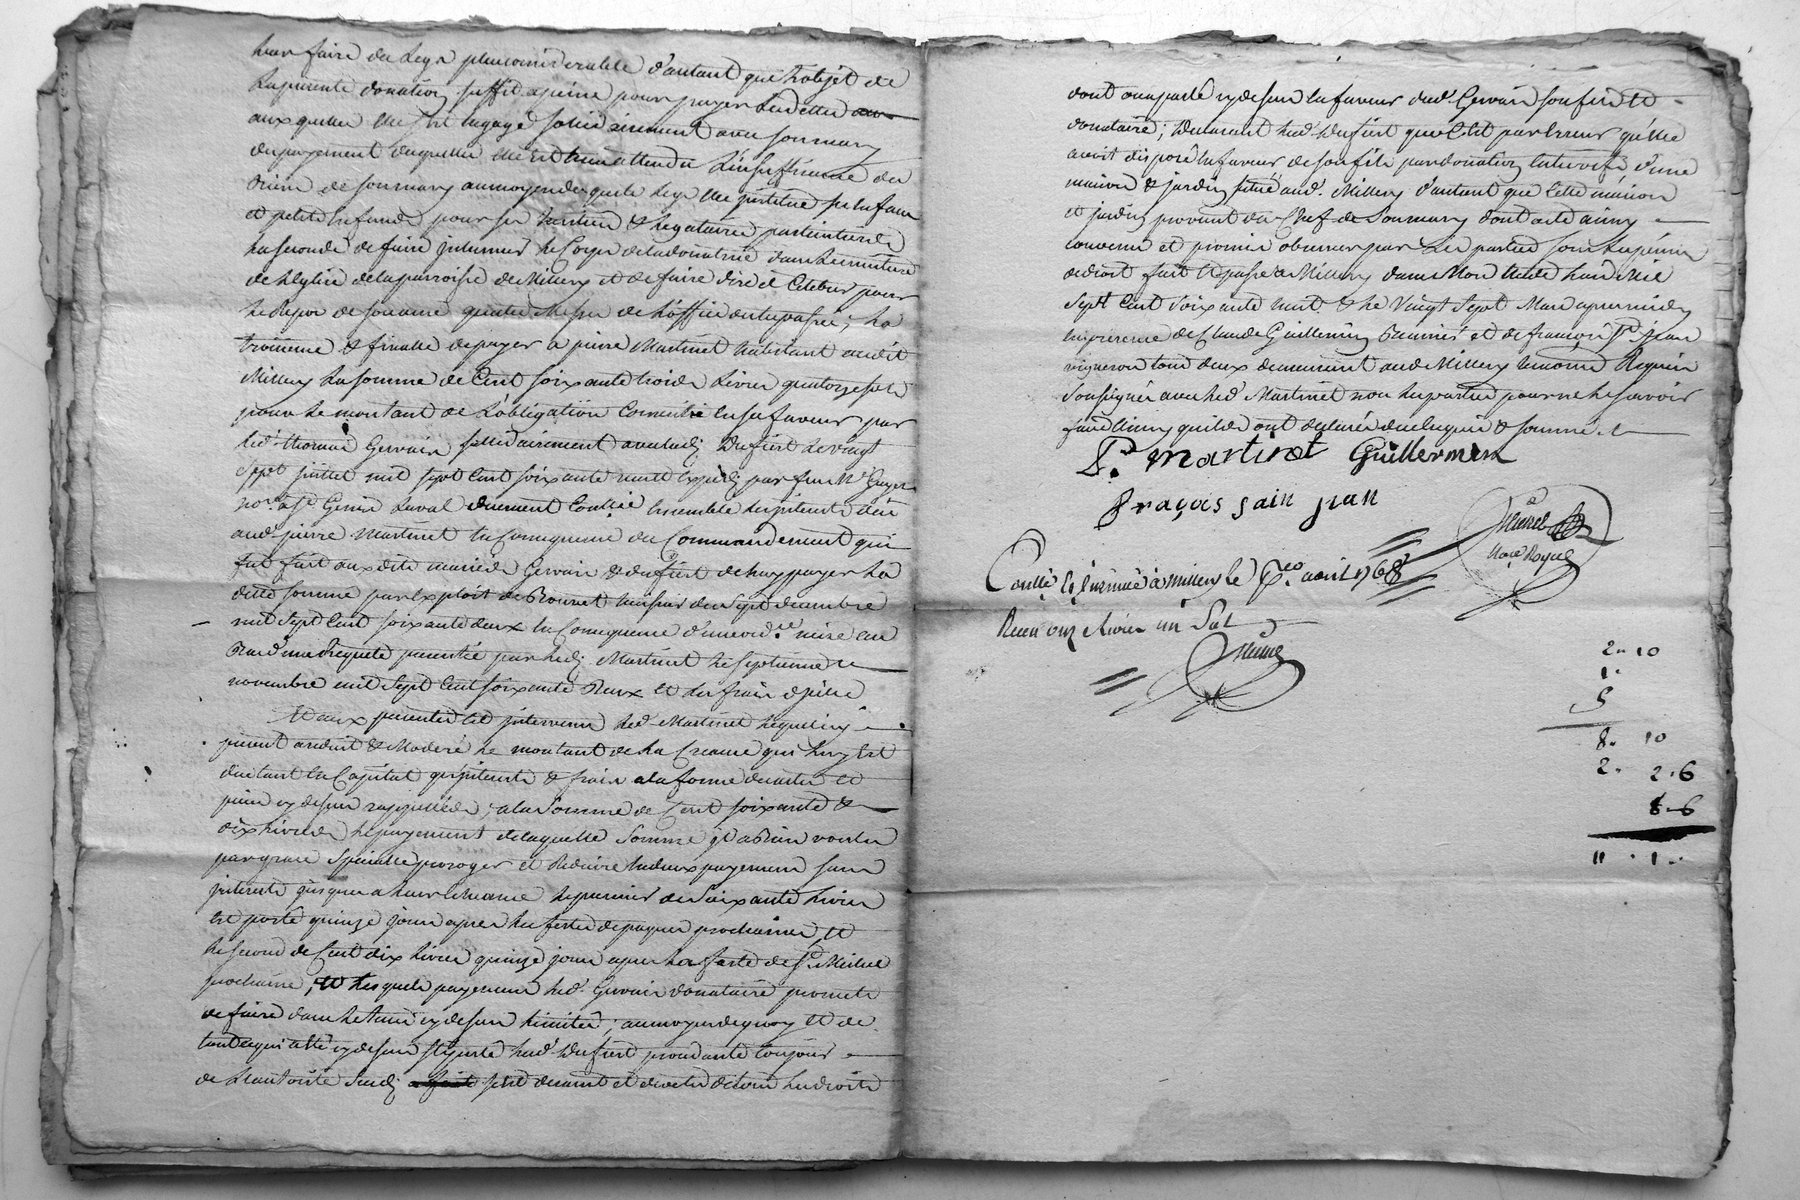 leur faire de legs plus considerable d'autant que l'objet de
la presente donation suffit a peine pour payer les dettes
aux quelles elle s'est engagé solidairement avec son mary
du payement desquelles elle est tenue attendu l'insuffisance des
biens de son mary au moyen desquels legs elle institue ses enfans
et petits enfans pour ses heritiers & legataires particuliers
la seconde de faire inhumer le Corps de la donatrice dans le cimetiere
de l'Eglise de la parroisse de Millery et de faire dire et Celebrer pour
le Repos de son ame quatre Messes de l'office des trepassés; la
troisieme & finalle de payer a pierre Martinet habitant audit
Millery la somme de Cent soixante trois livres quatorze sols
pour le montant de l'obligation Consentie en sa faveur par
led. thomas Gervais solidairement avec lad. Dufiert le vingt
sept juillet mil sept Cent soixante
no.re a St Genis Laval düement Conllée Ensemble les interets deüs
aud. pierre Martinet En Consequence du Commandement qui
fut fait aux dits mariés Gervais & Dufiert de luy payer la
ditte somme par Exploit de Bonnet huissier du sept decembre
mil sept Cent soixante deux En Consequence d'une ord.ce mise au
Bas d'une Requete presentée par led. Martinet le septieme
novembre mil sept Cent soixante Deux Et les frais d'icelle
Et aux presentes Est intervenu led. Martinet lequel icy
present a reduit & Moderé le montant de la Creance qui luy Est
due tant En Capital qu'interets & frais a la forme des actes et
pieces cy dessus rappellées, a la somme de Cent soixante &
dix livres le payement de laquelle somme il a Bien voulu
par grace speciale proroger et Reduire En deux payemens sans
interets jusques a leur Echeance le premier de soixante livres
Est porté quinze jours apres les fetes de paques prochaines, et
le second de Cent dix livres quinze jours apres la fete de St Michel
prochaine; Et lesquels payemens led. Gervais donataire promet
de faire dans les tems cy dessus limités; au moyen de quoy et de
tout ce qui a été cy dessus stipulé lad. Dufiert procedante toujours
de l'autorité sus d. s'est demise et devetüe de tous les droits
dont on a parlé cy dessus En faveur dud. Gervais son fils et
donataire; declarant lad. Dufiert que C'est par Erreur qu'elle
avoit disposé En faveur de son fils par donation entre vifs d'une
maison & jardin situé aud. Millery d'autant que cette maison
et jardin provient du Chef de Son mary dont acte ainsy
convenu et promis observer par les parties sous les peines
de droit fait et passé a Millery dans Mon Etude l'an Mil
sept Cent soixante huit & le Vingt sept Mars apres midy
En presence de Claude Guillermin et de françois St Jean
vigneron tous deux demeurant aud. Millery temoins Requis
soussignés avec led. Martinet non les parties pour ne le savoir
faire ainsy qu'ils ont declaré de ce Enquis & sommés
P. martinet Guillermin
fraçois sain jean
Not.re Royal
Conllé Et insinué à Millery le p.ero avril 1768
Receu onze livres un Sol
2 " 10
1 "
5
8 " 10
2 " 2 " 6
8 " 6
11 " 1 "